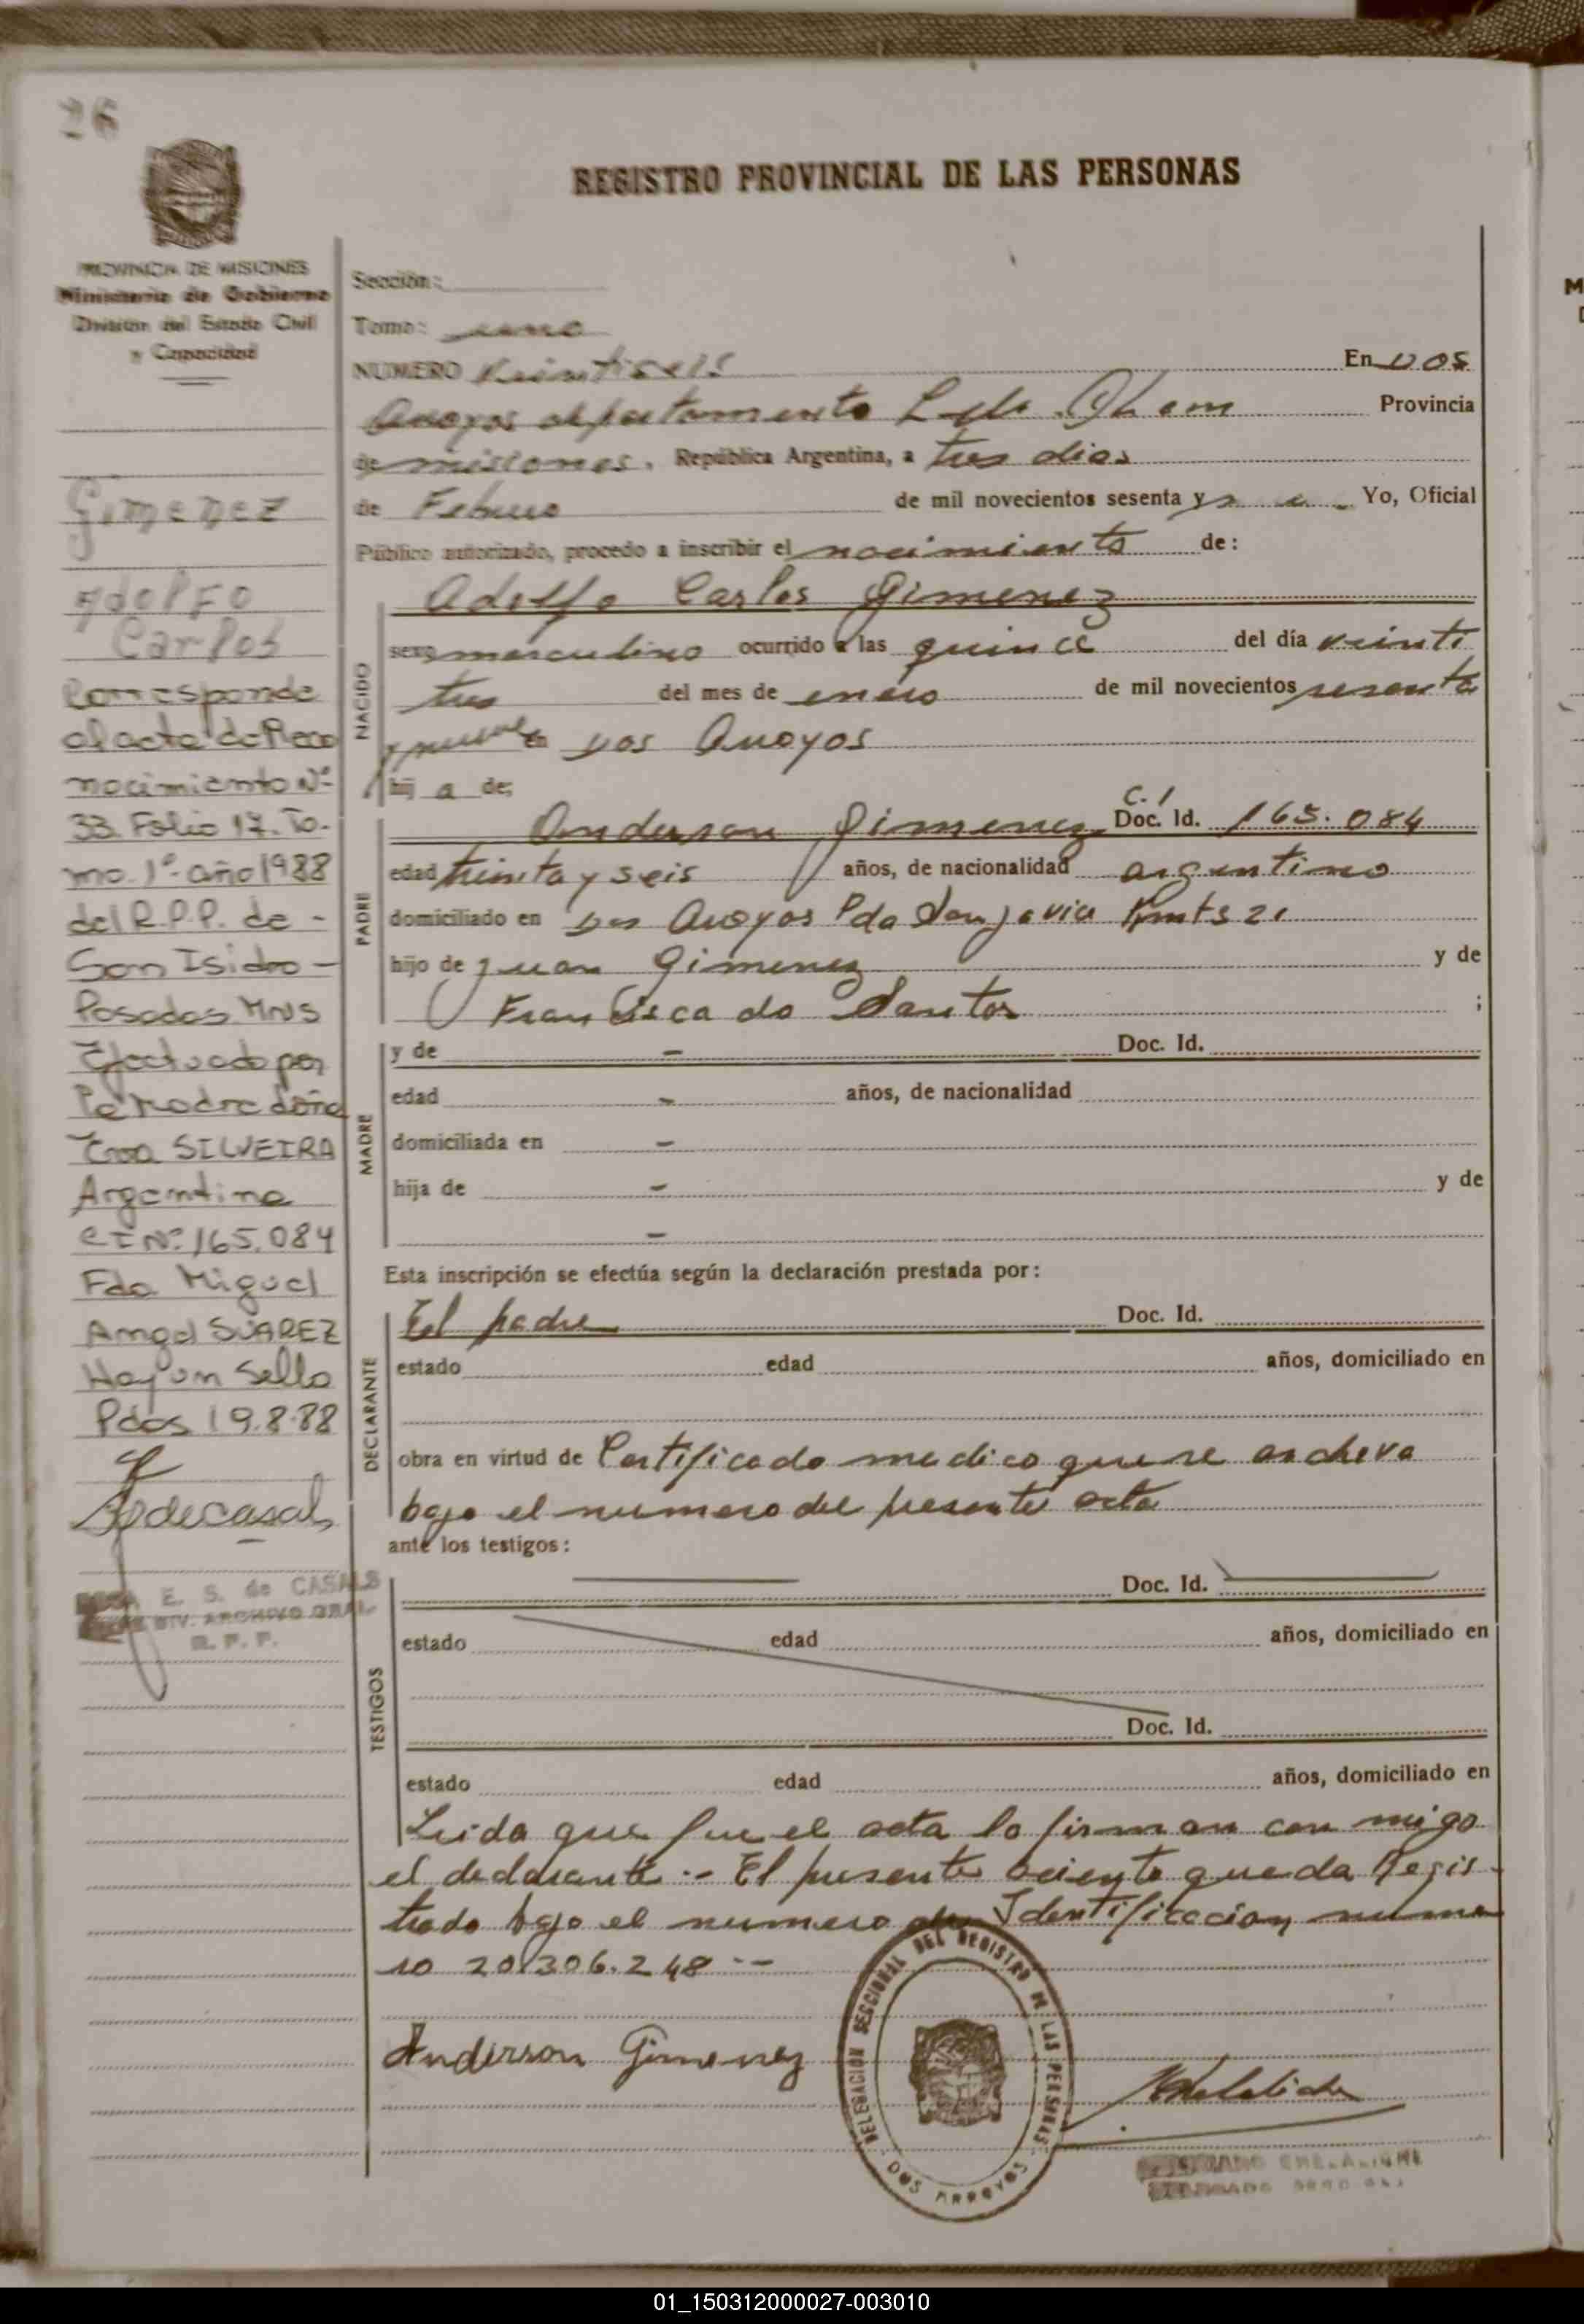 26
REGISTRO PROVINCIAL DE LAS PERSONAS
PROVINCIA DE MISIONES
Ministerio de Gobierno
División del Estado Civil
y Capacidad
Gimenez
Adolfo
Carlos
Corresponde
al acta de Reco
nocimiento Nº
33. Folio 17. To-
mo 1º año 1988
del R.P.P. de -
San Isidro -
Posadas Mns
Efectuado por
la Madre doña
SILVEIRA
Argentina
CI Nº 165.084
Fdo Miguel
Angel SUAREZ
Hay un Sello
Pdas 19.8.88
E. S. de CASALS
DIV. ARCHIVO GRAL.
R. P. P.
Sección:
Tomo: uno
NUMERO Veintiseis En Dos
Arroyos departamento L. N. Alem Provincia
de misiones. República Argentina, a tres dias
de Febrero de mil novecientos sesenta y Yo, Oficial
Público autorizado, procedo a inscribir el nacimiento de:
Adolfo Carlos Gimenez
NACIDO
sexo masculino ocurrido a las quince del día veinti
tres del mes de enero de mil novecientos sesenta
y nueve en Dos Arroyos
hij a de;
PADRE
Anderson Gimenez C.I Doc. Id. 165.084
edad treinta y seis años, de nacionalidad argentino
domiciliado en Dos Arroyos Pda San Javier Kmts 21
hijo de Juan Gimenez y de
Francisca do Santos ;
MADRE
y de - Doc. Id.
edad - años, de nacionalidad
domiciliada en -
hija de - y de
-
Esta inscripción se efectúa según la declaración prestada por:
DECLARANTE
El padre Doc. Id.
estado edad años, domiciliado en
obra en virtud de Certificado medico que se archiva
bajo el numero del presente acta
ante los testigos:
TESTIGOS
Doc. Id.
estado edad años, domiciliado en
Doc. Id.
estado edad años, domiciliado en
Leida que fue el acta lo firman con migo
el declarante.- El presente aciento queda Regis-
trado bajo el numero de Identificacion nume
ro 20.306.248 --
Anderson Gimenez
DELEGACION SECCIONAL DEL REGISTRO DE LAS PERSONAS
DOS ARROYOS
01_150312000027-003010